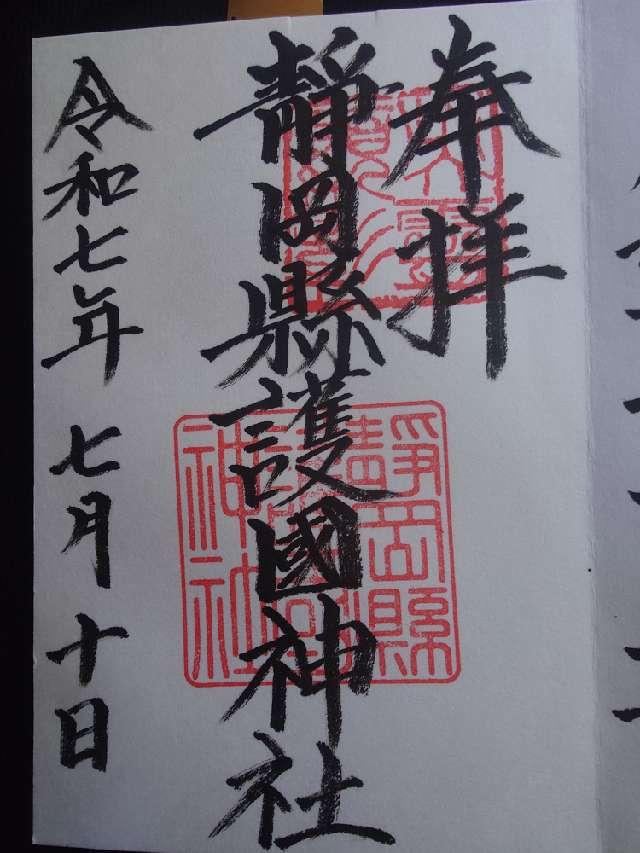 奉拝
靜岡縣護國神社
令和七年 七月 十日
靜岡縣
神社